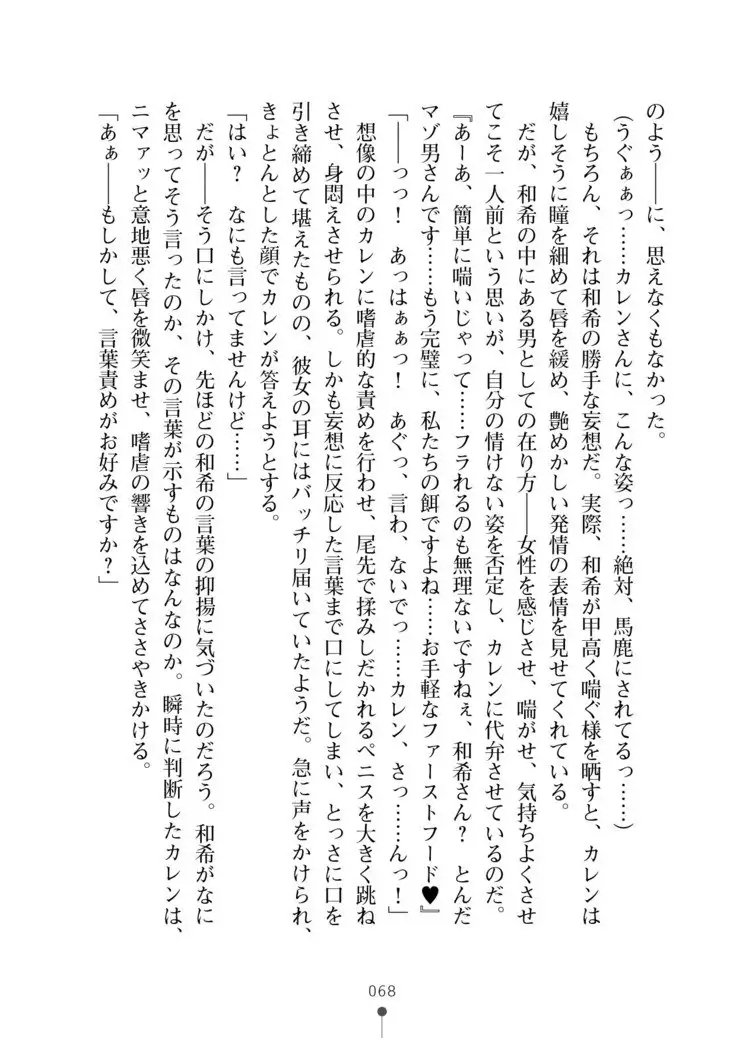 のよう――に、思えなくもなかった。
(うぐぁぁっ……カレンさんに、こんな姿っ……絶対、馬鹿にされてるっ……)
　もちろん、それは和希の勝手な妄想だ。実際、和希が甲高く喘ぐ様を晒すと、カレンは
嬉しそうに瞳を細めて唇を緩め、艶めかしい発情の表情を見せてくれている。
　だが、和希の中にある男としての在り方――女性を感じさせ、喘がせ、気持ちよくさせ
てこそ一人前という思いが、自分の情けない姿を否定し、カレンに代弁させているのだ。
『あーあ、簡単に喘いじゃって……フラれるのも無理ないですねぇ、和希さん？　とんだ
マゾ男さんです……もう完璧に、私たちの餌ですよね……お手軽なファーストフード♥』
「――っっ！　あっはぁぁっ！　あぐっ、言わ、ないでっ……カレン、さっ……んっ！」
　想像の中のカレンに嗜虐的な責めを行わせ、尾先で揉みしだかれるペニスを大きく跳ね
させ、身悶えさせられる。しかも妄想に反応した言葉まで口にしてしまい、とっさに口を
引き締めて堪えたものの、彼女の耳にはバッチリ届いていたようだ。急に声をかけられ、
きょとんとした顔でカレンが答えようとする。
「はい？　なにも言ってませんけど……」
　だが――そう口にしかけ、先ほどの和希の言葉の抑揚に気づいたのだろう。和希がなに
を思ってそう言ったのか、その言葉が示すものはなんなのか。瞬時に判断したカレンは、
ニマァッと意地悪く唇を微笑ませ、嗜虐の響きを込めてささやきかける。
「あぁ――もしかして、言葉責めがお好みですか？」
068